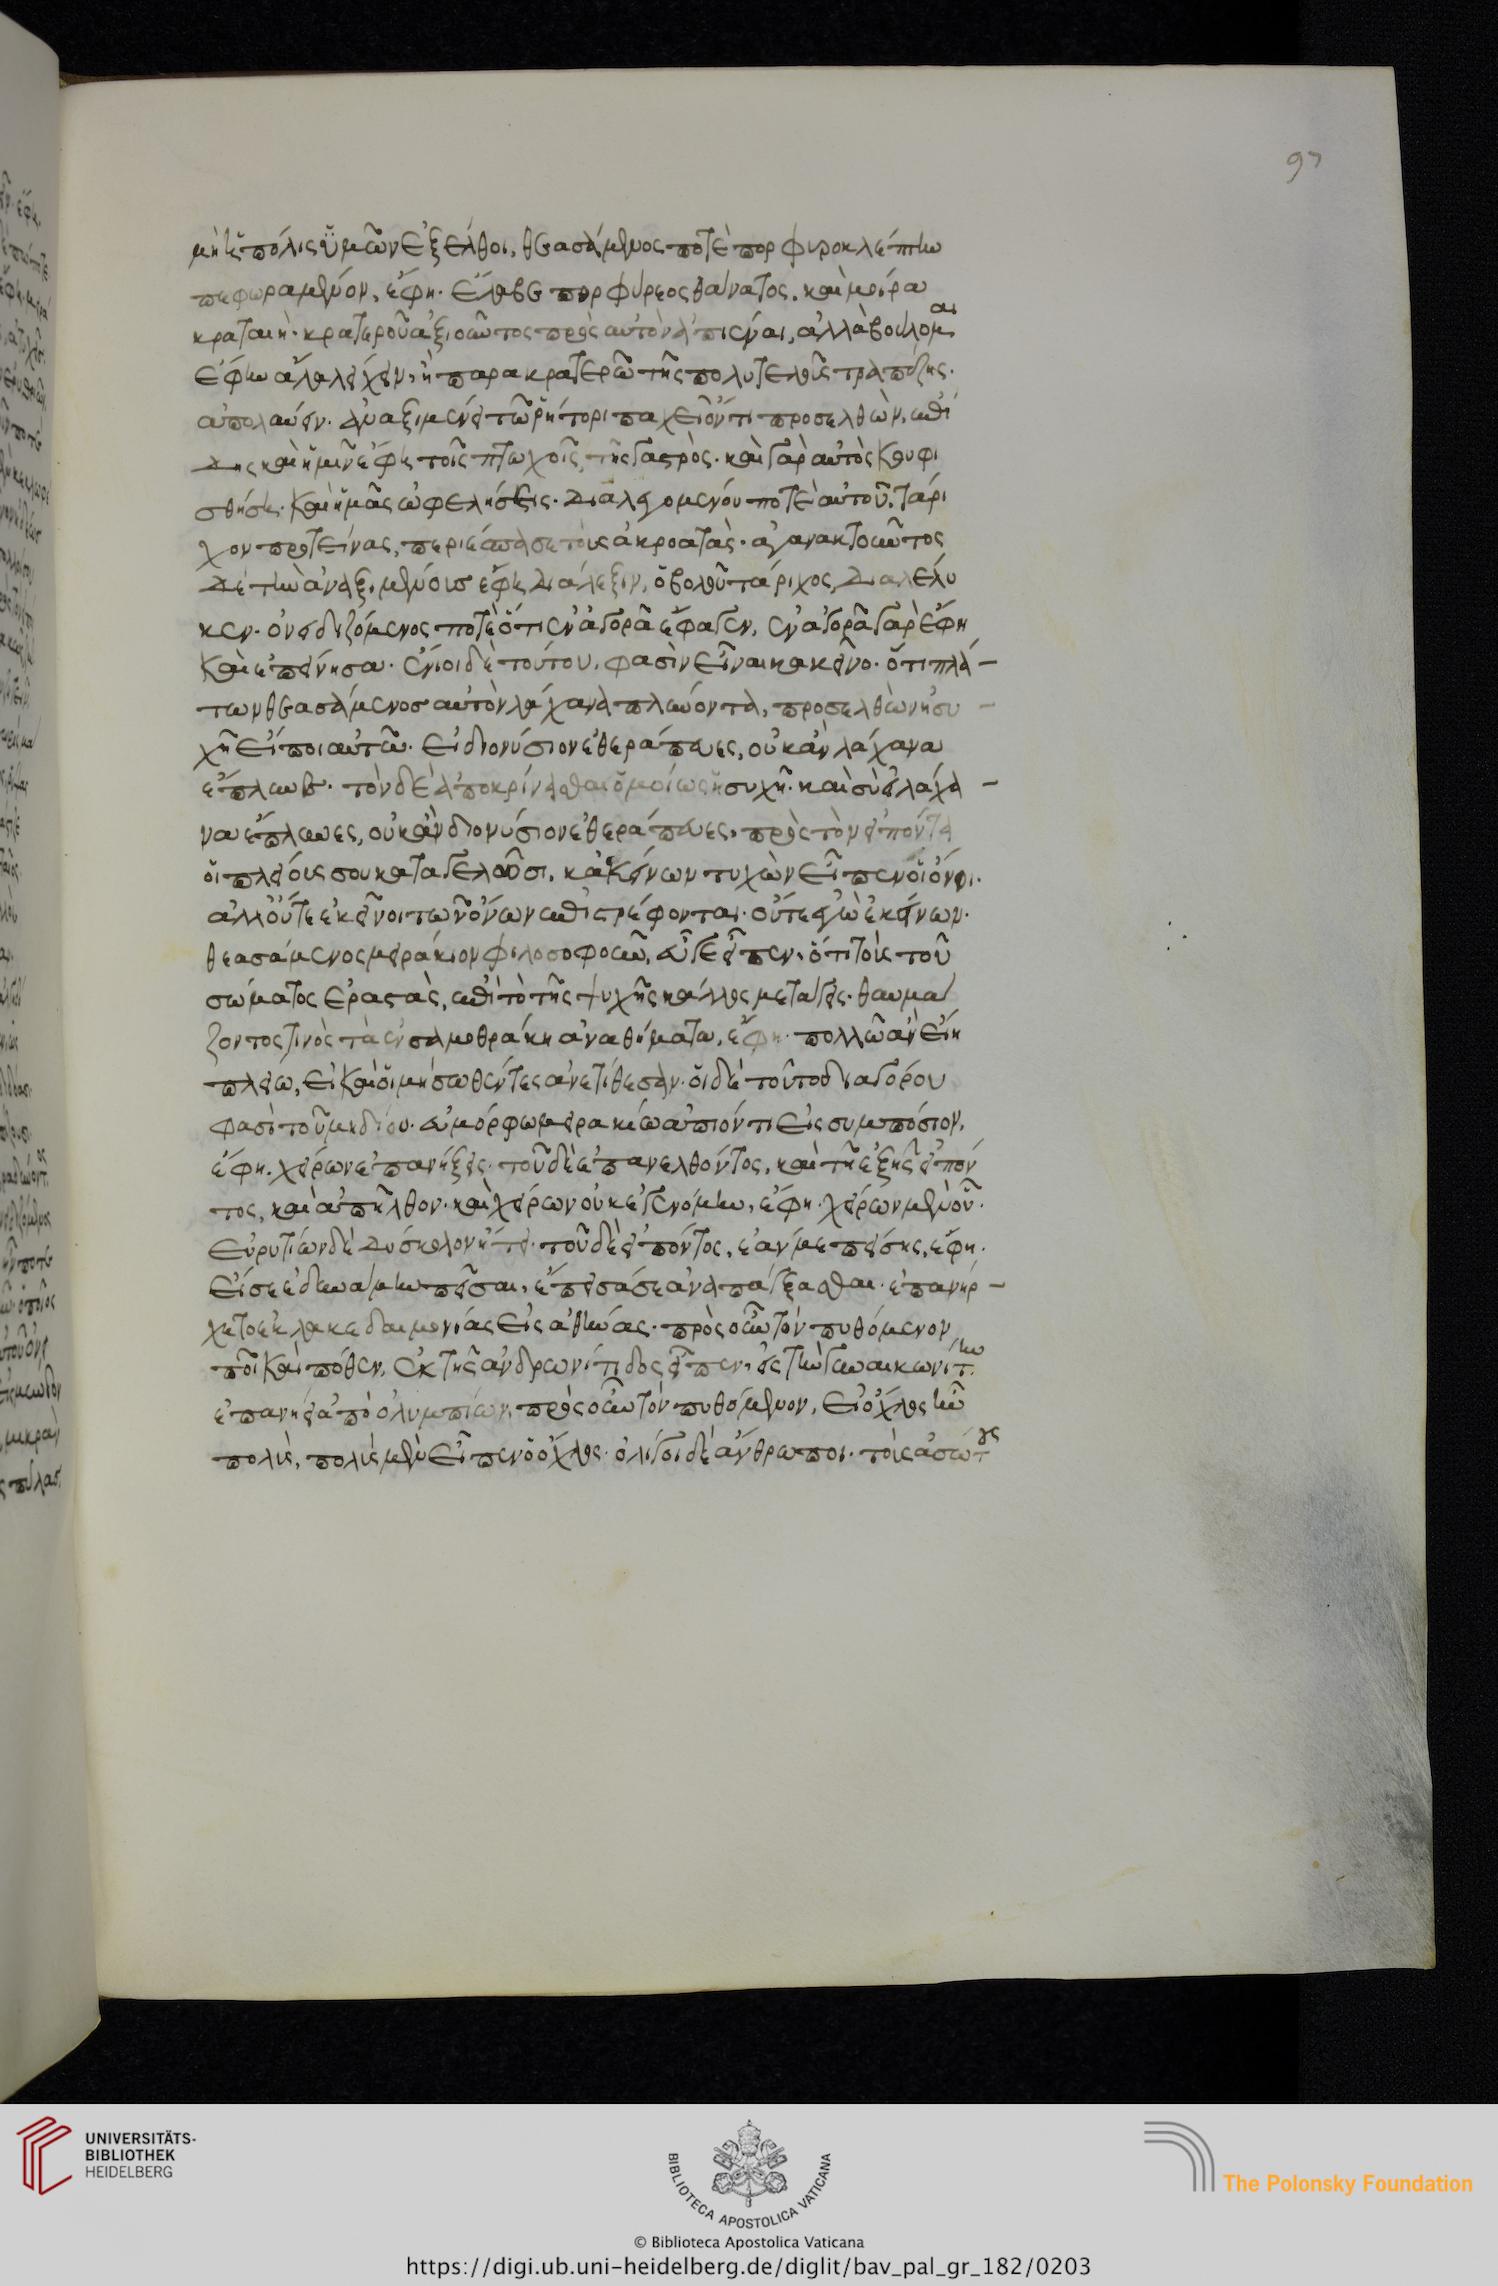 97
μὴ ἡ πόλις ὑμῶν ἐξέλθοι, θεασάμενος ποτὲ πορφυροκλέπτην
πεφωραμένον, ἔφη. ἔλαβε πορφύρεος θάνατος, καὶ μοῖρα
κραταιὴ. κρατεροῦ ἀξιοῦντος πρὸς αὐτὸν ἀπιέναι, ἀλλὰ βούλομαι
ἔφην ἅλα λείχειν, ἢ παρὰ κρατερῶ τῆς πολυτελοῦς τραπέζης.
ἀπολαύειν. ἀναξιμένει τῶ ῥήτορι παχεῖ ὄντι προσελθὼν, ἐπί
δος καὶ ἡμῖν ἔφη τοῖς πτωχοῖς, τῆς γαστρὸς. καὶ γὰρ αὐτὸς κουφι
σθήσει. καὶ ἡμᾶς ὠφελήσεις. διαλεγομένου ποτὲ αὐτοῦ, τάρι
χον προτείνας, περιέσπασε τοὺς ἀκροατὰς. ἀγανακτοῦντος
δὲ τὴν ἀναξιμένους ἔφη διάλεξιν, ὀβολοῦ τάριχος, διαλέλυ
κεν. ὀνειδιζόμενος ποτὲ ὅτι ἐν ἀγορᾶ ἔφαγεν, ἐν ἀγορᾶ γὰρ ἔφη
καὶ ἐπείνησα. ἔνιοι δὲ τούτου, φασὶν εἶναι κακεῖνο. ὅτι πλά-
των θεασάμενος αὐτὸν λάχανα πλύνοντα, προσελθὼν ἡσυ-
χῆ εἴποι αὐτῶ. εἰ διονύσιον ἐθεράπευες, οὐκ ἂν λάχανα
ἔπλυνες. τὸν δὲ ἀποκρίνασθαι ὁμοίως ἡσυχῆ. καὶ σὺ εἰ λάχα-
να ἔπλυνες, οὐκ ἂν διονύσιον ἐθεράπευες. πρὸς τὸν εἰπόντα
οἱ πλείους σου καταγελῶσι, κἀκείνων τυχὼν εἶπεν οἱ ὄνοι.
ἀλλ' οὔτε ἐκεῖνοι τῶν ὄνων ἐπιστρέφονται. οὔτε ἐγὼ ἐκείνων.
θεασάμενος μειράκιον φιλοσοφοῦν, εὖγε εἶπεν. ὅτι τοὺς τοῦ
σώματος ἐραστὰς, ἐπὶ τὸ τῆς ψυχῆς κάλλος μετάγεις. θαυμά
ζοντος τινὸς τὰ ἐν σαμοθράκη ἀναθήματα, ἔφη. πολλῶ ἂν εἴη
πλείω, εἰ καὶ οἱ μὴ σωθέντες ἀνετίθεσαν. οἱ δὲ τοῦτο διαγόρου
φασὶ τοῦ μηδίου. εὐμόρφω μειρακίω ἀπιόντι εἰς συμπόσιον,
ἔφη. χείρων ἐπανήξεις. τοῦ δὲ ἐπανελθόντος, καὶ τῆ ἑξῆς εἰπόν
τος, καὶ ἀπῆλθον. καὶ χείρων οὐκ ἐγενόμην, ἔφη. χείρων μὲν οὔ.
εὐρυτίων δὲ δύσκολον ἤτει. τοῦ δὲ εἰπόντος, ἐάν με πείσης, ἔφη.
εἴ σε ἐδυνάμην πεῖσαι, ἔπεισά σε ἀν ἀπάγξασθαι. ἐπανήρ-
χετο ἐκ λακεδαιμονίας εἰς ἀθήνας. πρὸς οὖν τὸν πυθόμενον
ποῖ καὶ πόθεν, ἐκ τῆς ἀνδρωνίτιδος εἶπεν, εἰς τὴν γυναικωνῖτιν.
ἐπανήει ἀπὸ ὀλυμπίων, πρὸς οὖν τὸν πυθόμενον, εἰ ὄχλος ἦν
πολὺς, πολὺς μὲν εἶπεν ὁ ὄχλος. ὀλίγοι δὲ ἄνθρωποι. τοὺς ἀσώτους
UNIVERSITÄTS-
BIBLIOTHEK
HEIDELBERG
BIBLIOTECA APOSTOLICA VATICANA
The Polonsky Foundation
© Biblioteca Apostolica Vaticana
https://digi.ub.uni-heidelberg.de/diglit/bav_pal_gr_182/0203